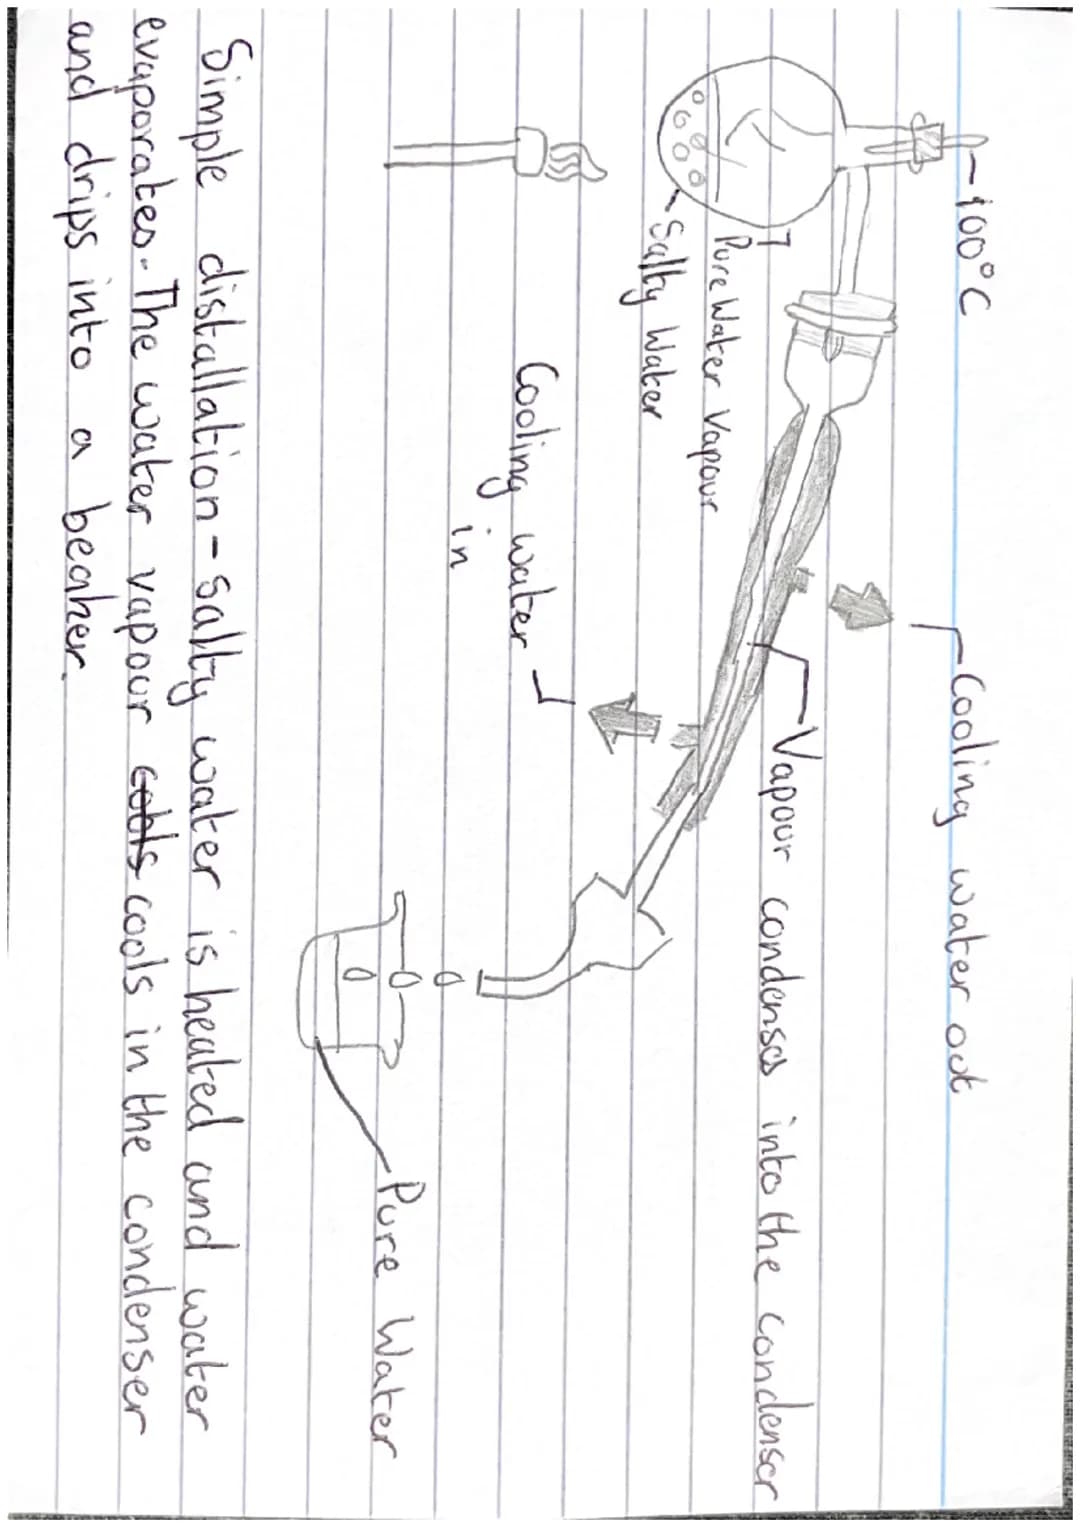 100°C
Cooling water out
Vapour condenses into the condenser
Pure Water Vapour
Salty Water
Cooling water
in
Pure Water
Simple distallation - salty water is heated and water
evaporates. The water vapour cools cools in the condenser
and drips into a beaker.